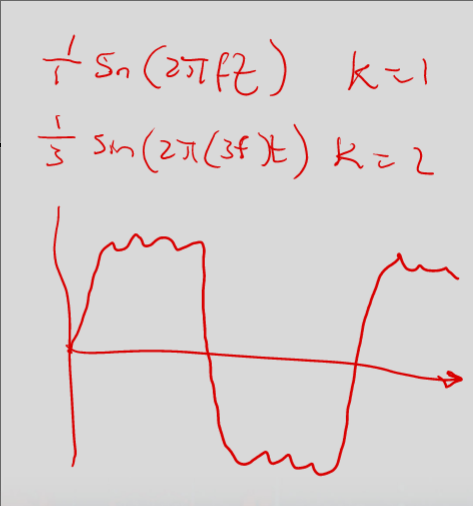 1/1 Sin (2πft) k=1
1/3 sin (2π(3f)t) k=2